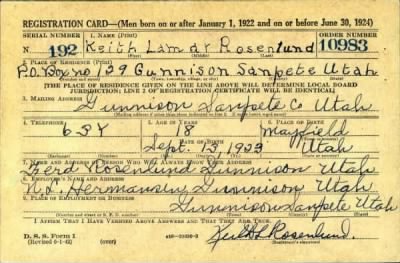 REGISTRATION CARD—(Men born on or after January 1, 1922 and on or before June 30, 1924)
SERIAL NUMBER 1. NAME (Print) ORDER NUMBER
N 192 Keith Lamar Rosenlund 10983
2. PLACE OF RESIDENCE (Print)
P.O. Box no 129 Gunnison Sanpete Utah
[THE PLACE OF RESIDENCE GIVEN ON THE LINE ABOVE WILL DETERMINE LOCAL BOARD
JURISDICTION; LINE 2 OF REGISTRATION CERTIFICATE WILL BE IDENTICAL]
3. MAILING ADDRESS
Gunnison Sanpete Co Utah
4. TELEPHONE 5. AGE IN YEARS 6. PLACE OF BIRTH
18 Mayfield
DATE OF BIRTH
Sept. 13, 1923 Utah
7. NAME AND ADDRESS OF PERSON WHO WILL ALWAYS KNOW YOUR ADDRESS
Rosenlund Gunnison Utah
8. EMPLOYER'S NAME AND ADDRESS
Hermansen Gunnison Utah
9. PLACE OF EMPLOYMENT OR BUSINESS
Gunnison Sanpete Utah
I AFFIRM THAT I HAVE VERIFIED ABOVE ANSWERS AND THAT THEY ARE TRUE.
D. S. S. Form 1
Keith L Rosenlund